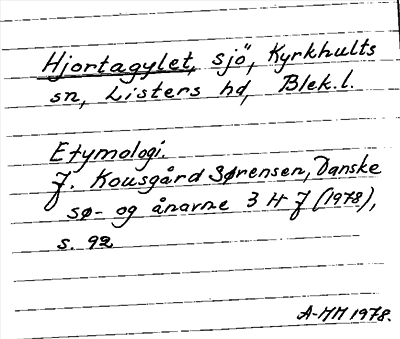 Hjortagylet, sjö, Kyrkhults
sn, Listers hd, Blek.l.
Etymologi.
J. Kousgård Sørensen, Danske
sø- og ånavne 3 H-J (1978),
s. 92
A-MM 1978.